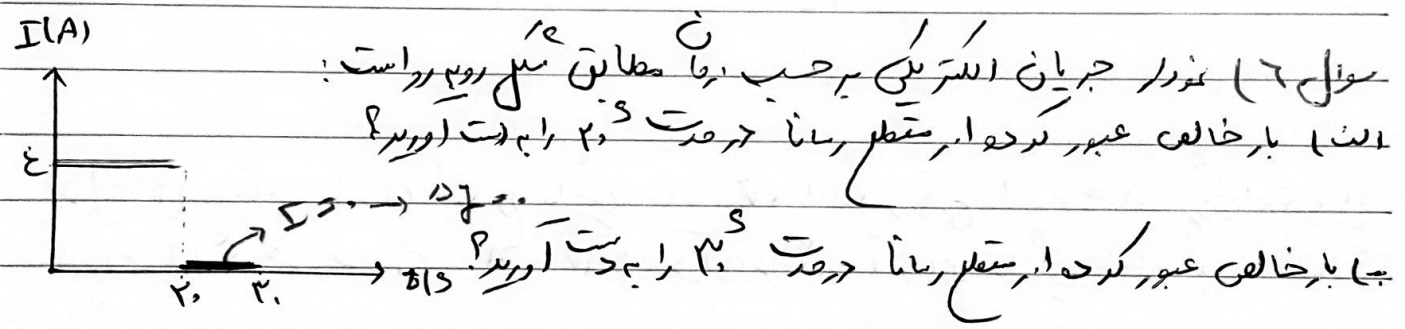 I(A)
سوال ۶) نمودار جریان الکتریکی برحسب زمان مطابق شکل روبه رو است:
الف) بار خالص عبور کرده از مقطع رسانا در مدت ۲۰s را به دست آورید؟
۴
I=۰ → Δq=۰
ب) بار خالص عبور کرده از مقطع رسانا در مدت ۳۰s را به دست آورید؟
۲۰ ۳۰ t(s